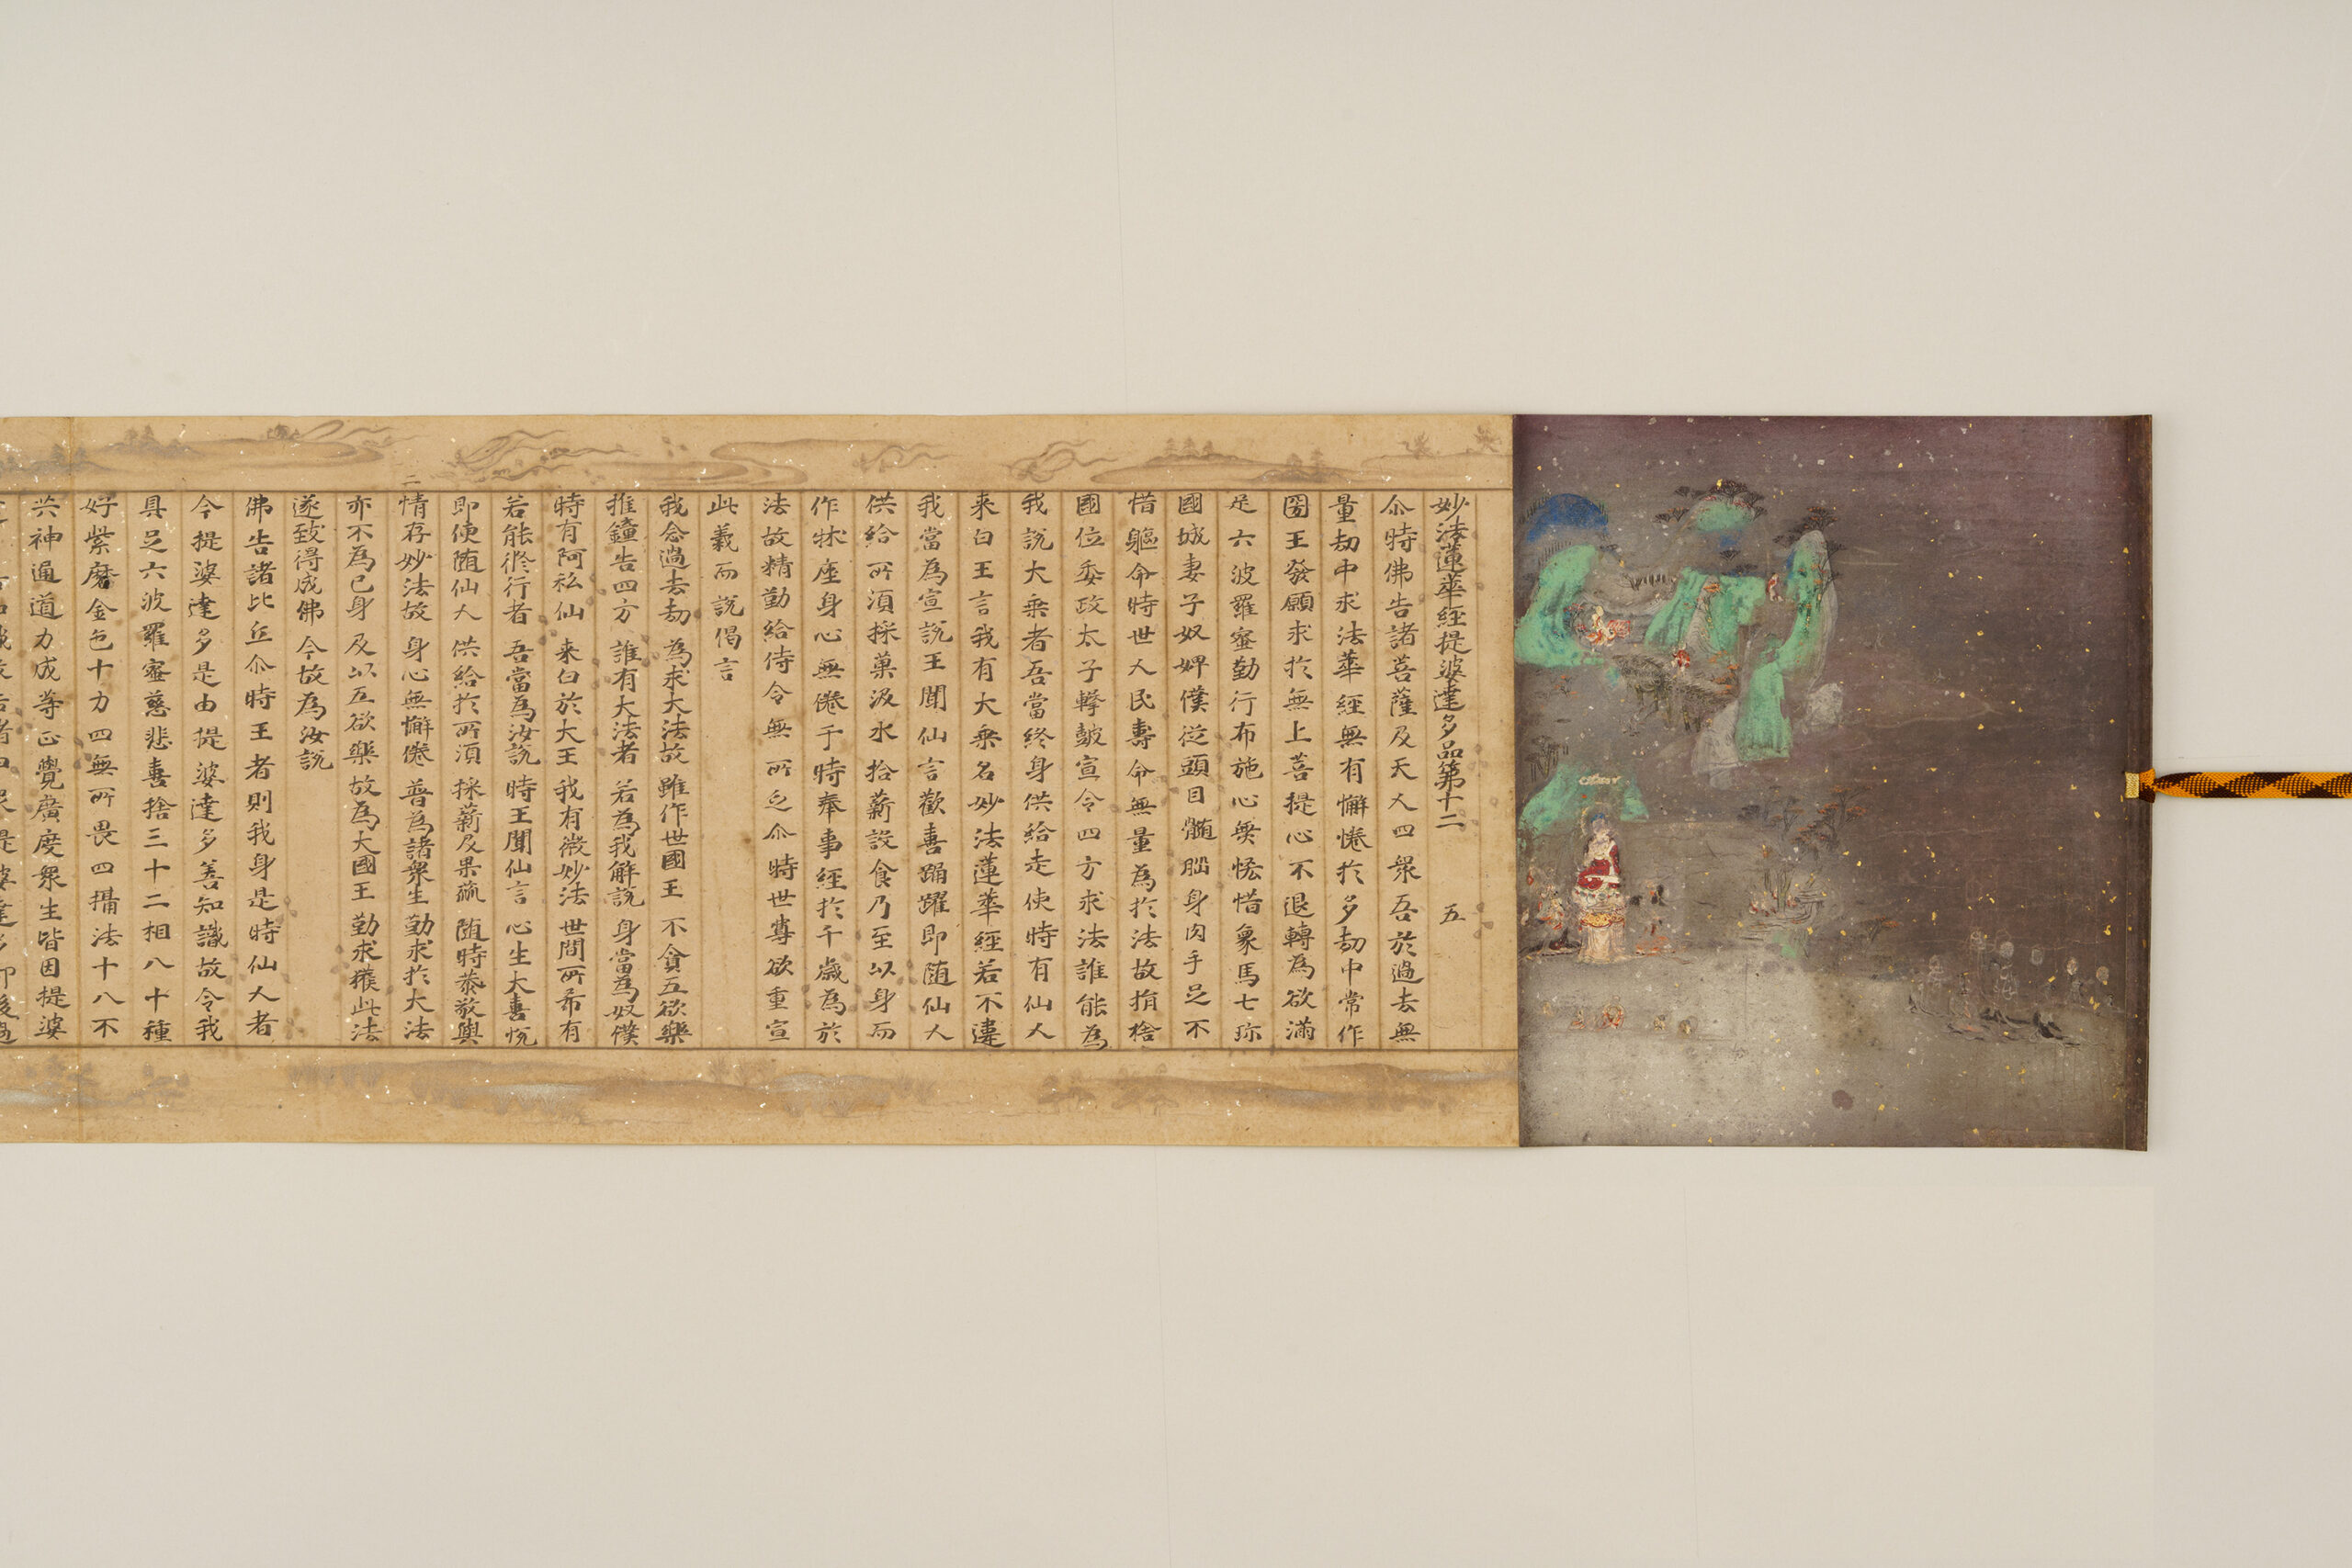 妙法蓮華經提婆達多品第十二 五
尒時佛告諸菩薩及天人四衆吾於過去無
量劫中求法華經無有懈惓於多劫中常作
國王發願求於無上菩提心不退轉為欲滿
足六波羅蜜勤行布施心無悋惜象馬七珎
國城妻子奴婢僕從頭目髓𦛁身肉手足不
惜軀命時世人民壽命無量為於法故捐捨
國位委政太子擊皷宣令四方求法誰能為
我說大乘者吾當終身供給走使時有仙人
来白王言我有大乘名妙法蓮華經若不違
我當為宣說王聞仙言歡喜踊躍即隨仙人
供給所湏採菓汲水拾薪設食乃至以身而
作牀座身心無倦于時奉事經於千歲為於
法故精勤給侍令無所乏尒時世尊欲重宣
此義而說偈言
我念過去劫 為求大法故 雖作世國王 不貪五欲樂
推鐘告四方 誰有大法者 若為我解說 身當為奴僕
時有阿私仙 来白於大王 我有微妙法 世間所希有
若能修行者 吾當為汝說 時王聞仙言 心生大喜恱
即便随仙人 供給於所湏 採薪及果蓏 随時恭敬與
情存妙法故 身心無懈倦 普為諸衆生 勤求於大法
亦不為己身 及以五欲樂 故為大國王 勤求獲此法
遂致得成佛 今故為汝說
佛告諸比丘尒時王者則我身是時仙人者
今提婆達多是由提婆達多善知識故令我
具足六波羅蜜慈悲喜捨三十二相八十種
好紫磨金色十力四無所畏四攝法十八不
共神通道力成等正覺廣度衆生皆因提婆